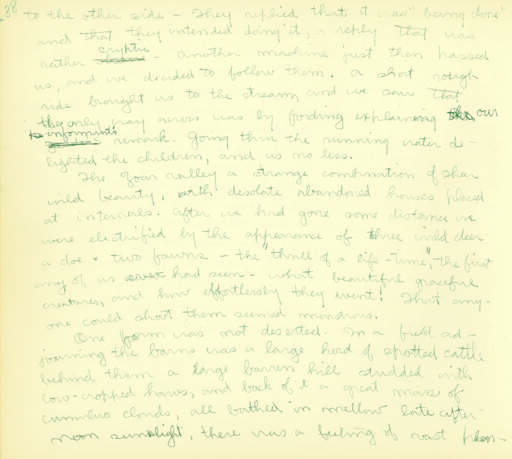 38
to the other side - They replied that it was "being done"
and that they intended doing it, a reply that was
rather cryptic. Another machine just then passed
us, and we decided to follow them. A short rough
ride brought us to the stream, and we saw that
the only way across was by fording explaining our
informant's remark. Going thru the running water de-
lighted the children, and us no less.
The Zoar valley a strange combination of shear
wild beauty, with desolate abandoned houses placed
at intervals. After we had gone some distance we
were electrified by the appearance of three wild deer
a doe & two fawns - the "thrill of a life-time", the first
any of us had seen - what beautiful graceful
creatures, and how effortlessly they went! That any-
one could shoot them seemed monstrous.
One farm was not deserted. In a field ad-
joining the barns was a large herd of spotted cattle
behind them a large barren hill studded with
cow-cropped haws, and back of it a great mass of
cumulus clouds, all bathed in mellow late after-
noon sunlight, there was a feeling of vast